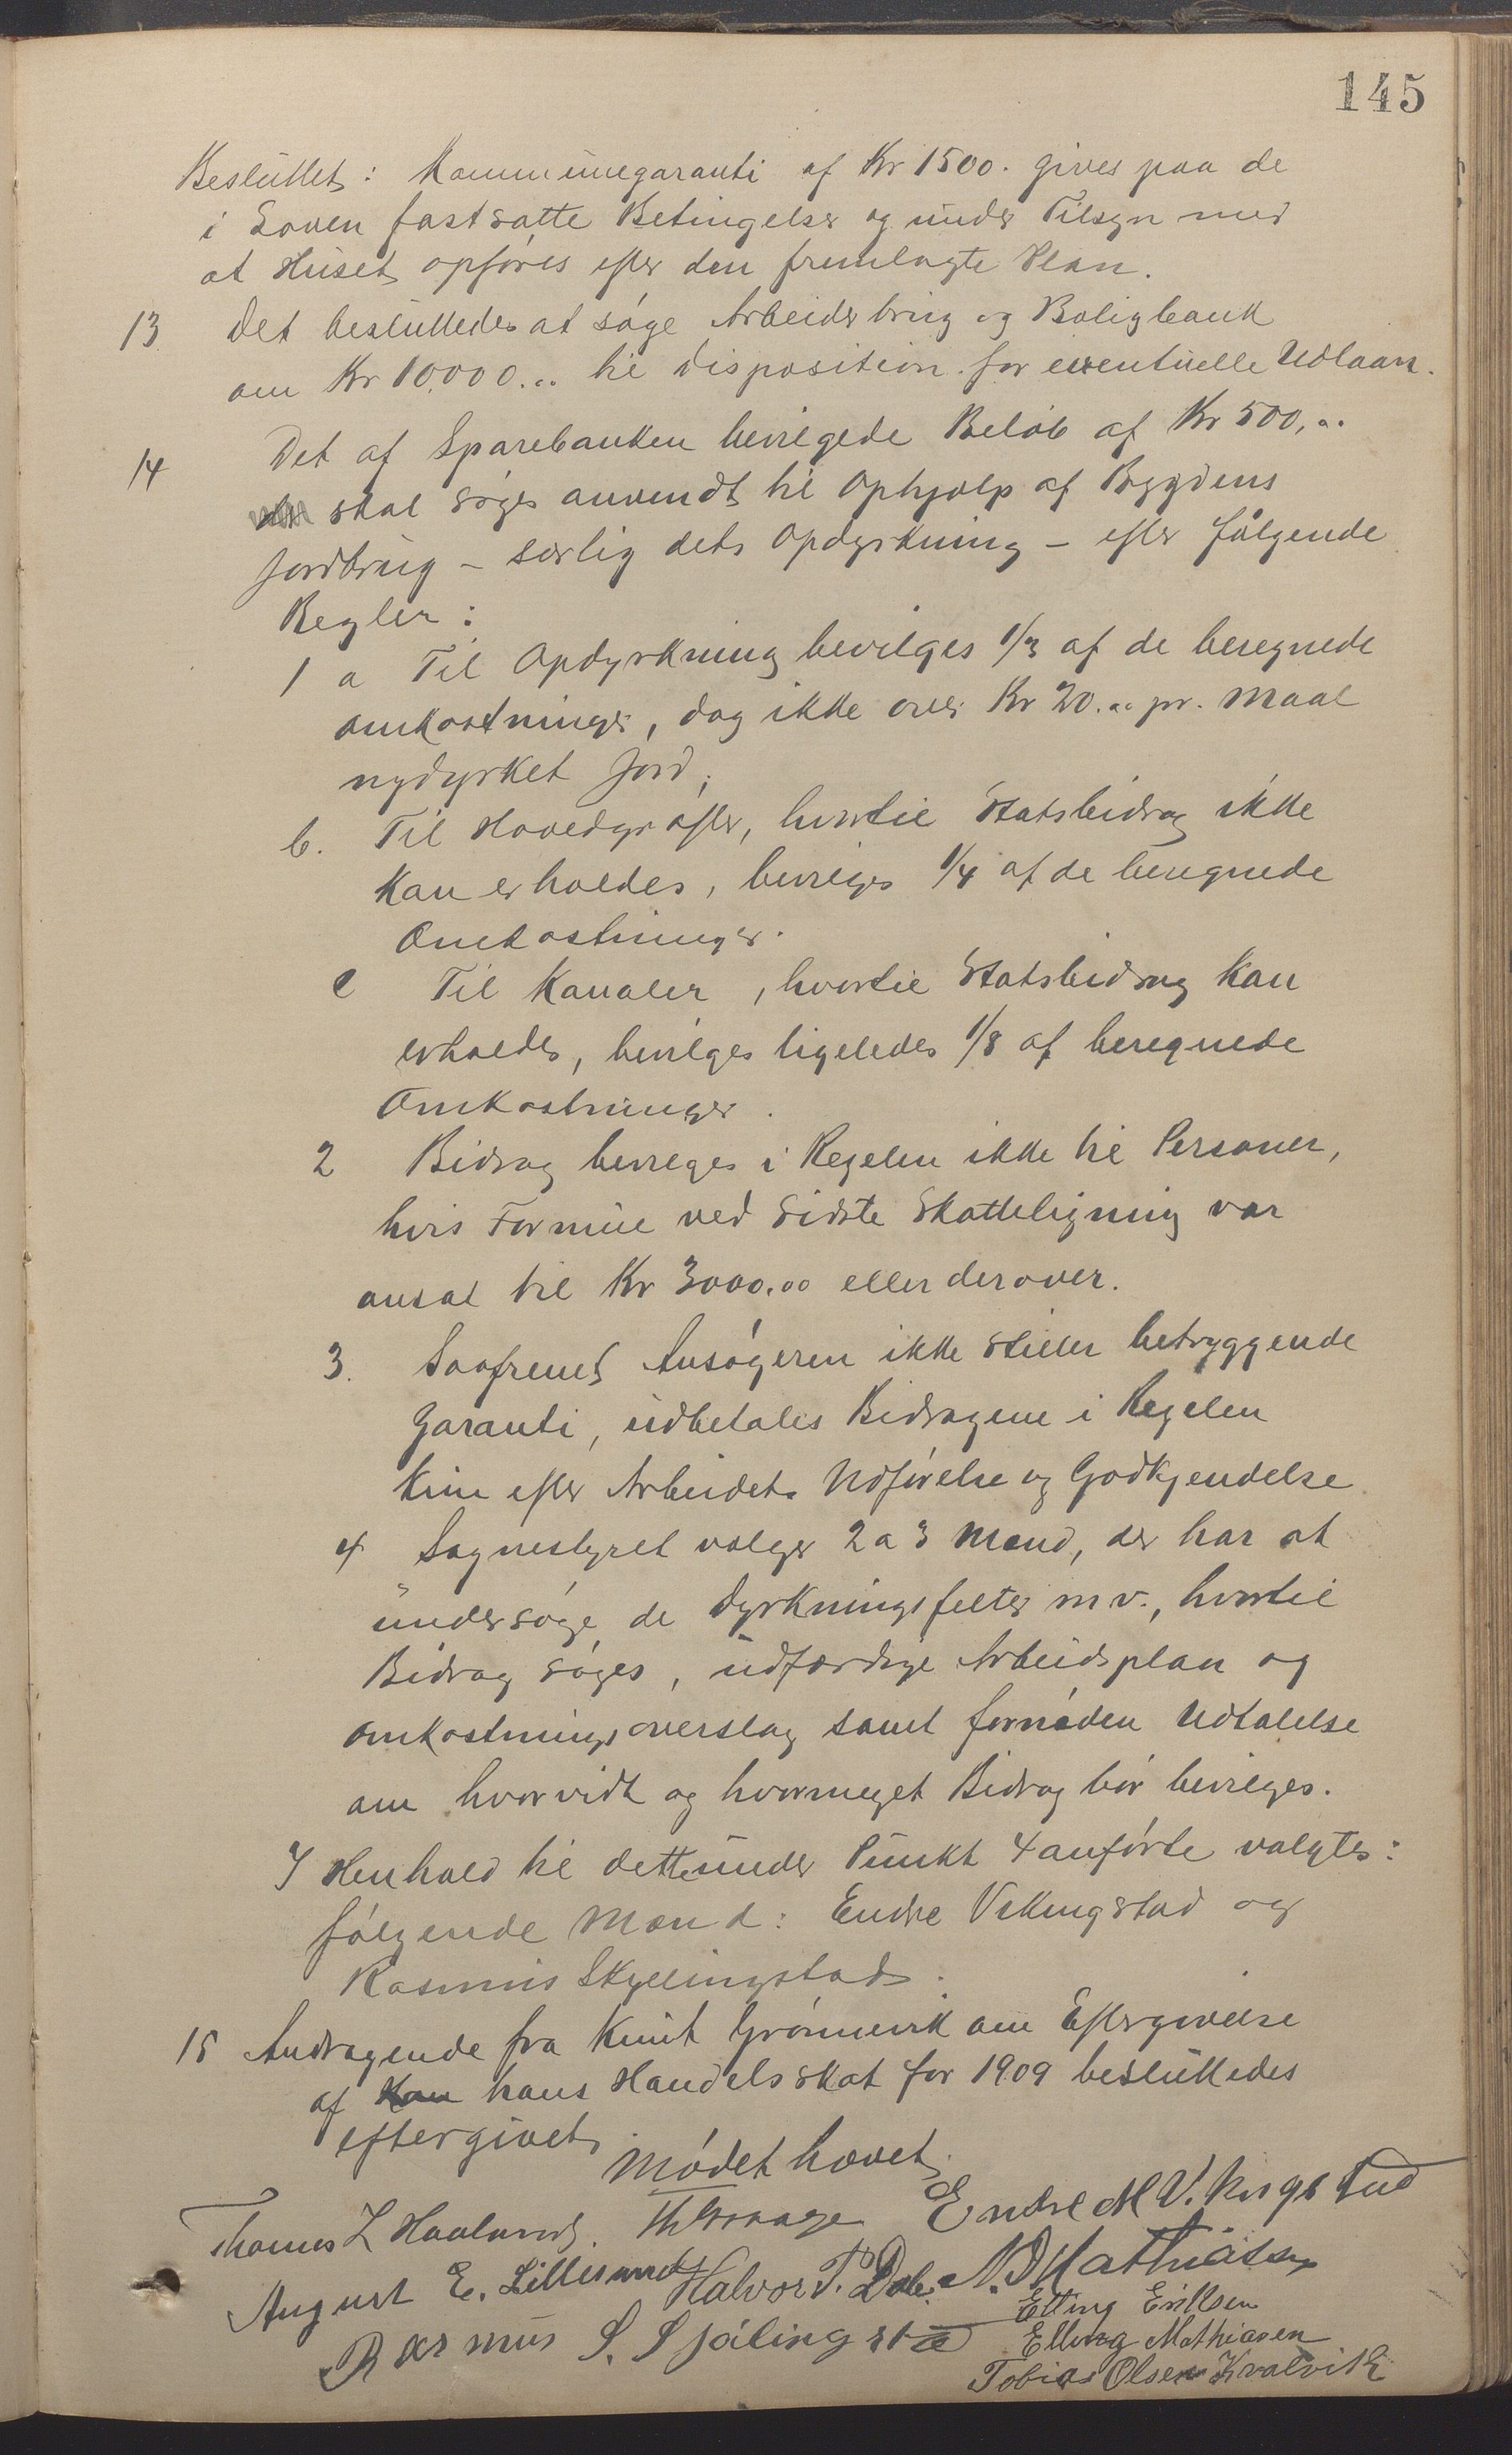 145
Besluttet: Kommunegaranti af Kr 1500. gives paa de
i Loven fastsatte Betingelser og under Tilsyn med
at Huset opføres efter den fremlagte Plan.
13 Det besluttedes at søge Arbeiderbrug og Boligbank
om Kr 10.000.00 til disposition for eventuelle Udlaan.
14 Det af Sparebanken bevilgede Beløb af Kr 500,00
skal søges anvendt til Ophjælp af Bygdens
Jordbrug - særlig dets Opdyrkning - efter følgende
Regler:
1 a Til Opdyrkning bevilges 1/3 af de beregnede
omkostninger, dog ikke over Kr 20.00 pr. Maal
nydyrket Jord;
b. Til Hovedgrøfter, hvortil Statsbidrag ikke
kan erholdes, bevilges 1/4 af de beregnede
Omkostninger.
c Til Kanaler, hvortil Statsbidrag kan
erholdes, bevilges ligeledes 1/8 af beregnede
Omkostninger.
2 Bidrag bevilges i Regelen ikke til Personer,
hvis Formue ved sidste Skatteligning var
ansat til Kr 3000.00 eller derover.
3. Saafremt Ansøgeren ikke stiller betryggende
Garanti, udbetales Bidragene i Regelen
kun efter Arbeidets Udførelse og Godkjendelse
4 Sognestyret vælger 2 a 3 Mænd, der har at
undersøge de Dyrkningsfelter m v., hvortil
Bidrag søges, udfærdige Arbeidsplan og
omkostningsoverslag samt fornøden Udtalelse
om hvorvidt og hvormeget Bidrag bør bevilges.
I Henhold til dette under Punkt 4 anførte valgtes:
følgende Mænd: Endre Vikingstad og
Rasmus Skyllingstad.
15 Andragende fra Knut Grønnevik om Eftergivelse
af Kan hans Handelsskat for 1909 besluttedes
eftergivet.
Mødet hævet.
Thomas L Haaland. Endre M Vikingstad
August E. Lillesund Halvor T. Dale. N. D Mathiasen
Rasmus S. Sjølingstad Elling Eriksen
Elling Mathiasen
Tobias Olsen Kvalvik